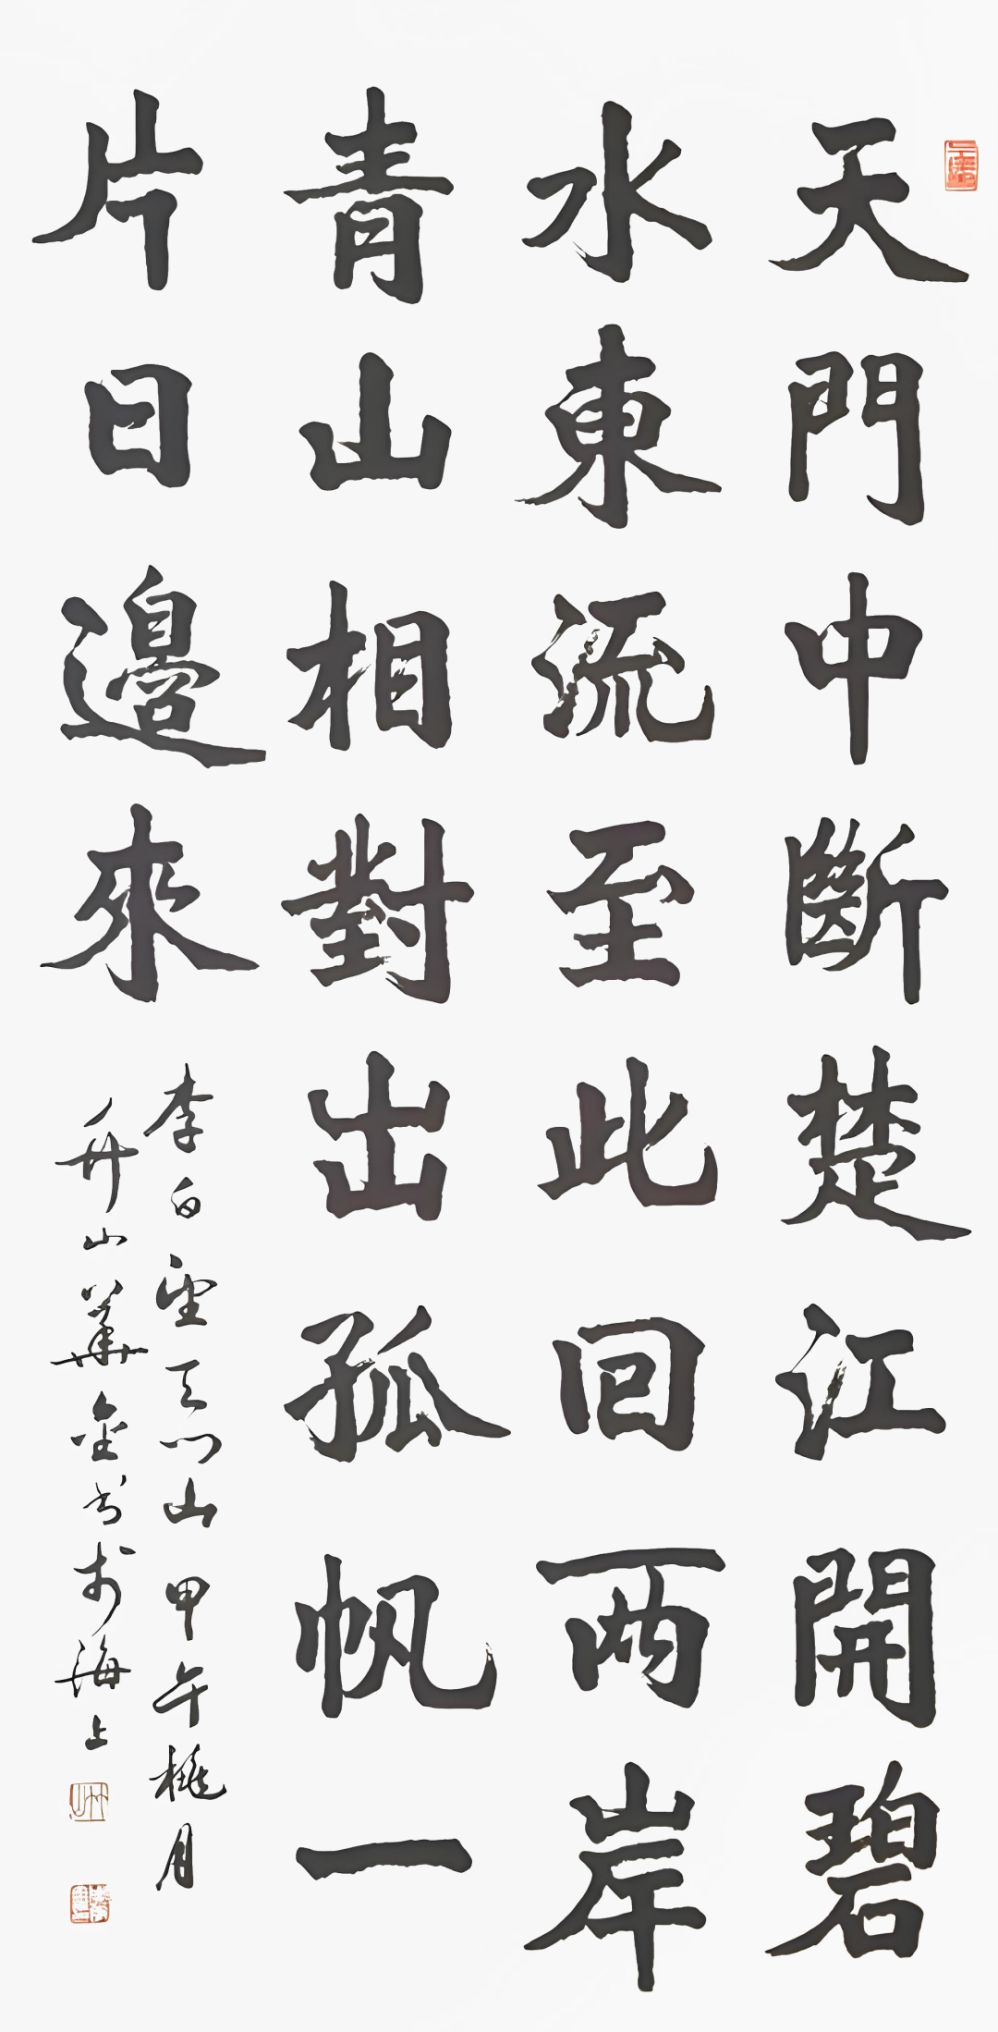 天門中斷楚江開碧
水東流至此回兩岸
青山相對出孤帆一
片日邊來
李白望天门山甲午桃月
升山華金书於海上